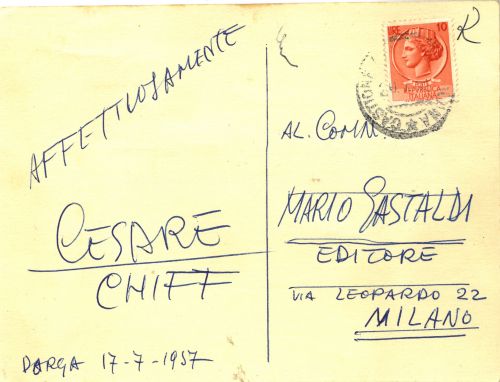 AFFETTUOSAMENTE
CESARE
CHIFF
DARGA 17-7-1957
R
10
REPVBBLICA
ITALIANA
AL COMM.
MARIO GASTALDI
EDITORE
VIA LEOPARDO 22
MILANO